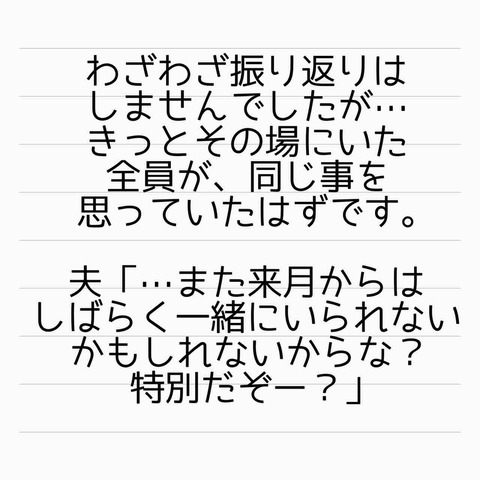 わざわざ振り返りは
しませんでしたが…
きっとその場にいた
全員が、同じ事を
思っていたはずです。
夫「…また来月からは
しばらく一緒にいられない
かもしれないからな？
特別だぞー？」